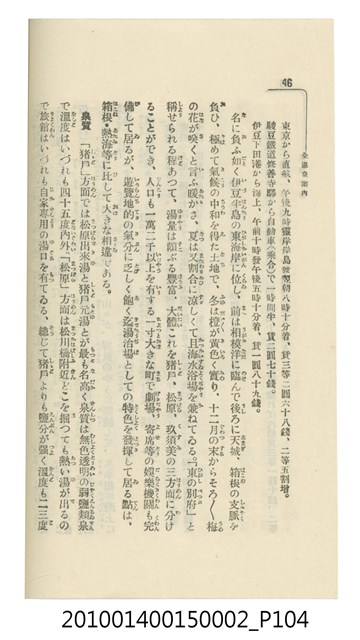 46
全國溫泉案内
東京から直航、午後九時靈岸島發翌朝八時十分着、賃三等二圓六十八錢、二等五割增。
駿豆鐵道修善寺驛から自動車(乘合)で一時間半、賃二圓七十錢。
伊豆下田港から海上、午前十時發午後五時十分着、賃一圓八十九錢。
名に負ふ如く伊豆半島の東海岸に位し、前は相模洋に臨んで後ろに天城、箱根の支脈を
負ひ、極めて氣候の中和を得た土地で、冬は橙が黃色く實り、十二月の末からそろ〳〵梅
の花が咲くと言ふ暖かさ、夏は又割合に凉しくて且海水浴場を兼ねてゐる『東の別府』と
稱せられる程あつて、湯量は頗ぶる豐富、大體これを猪戶、松原、玖須美の三方面に分け
ることができ、人口も一萬二千以上を有する一寸大きな町で劇場、寄席等の娯樂機關も完
備して居るが、遊覽地的の氣分に乏しく飽く迄湯治場としての特色を發揮して居る點は、
箱根・熱海等に比して大きな相違である。
泉質 「猪戶」方面では松原出來湯と猪戶元湯とが最も名高く泉質は無色透明の弱鹽類泉
で溫度はいづれも四十五度内外、「松原」方面は松川橋附近どこを掘つても熱い湯が出るの
で旅館はいづれも自家專用の湯口を有てゐる、總じて猪戶よりも鹽分が强く溫度も二三度
201001400150002_P104